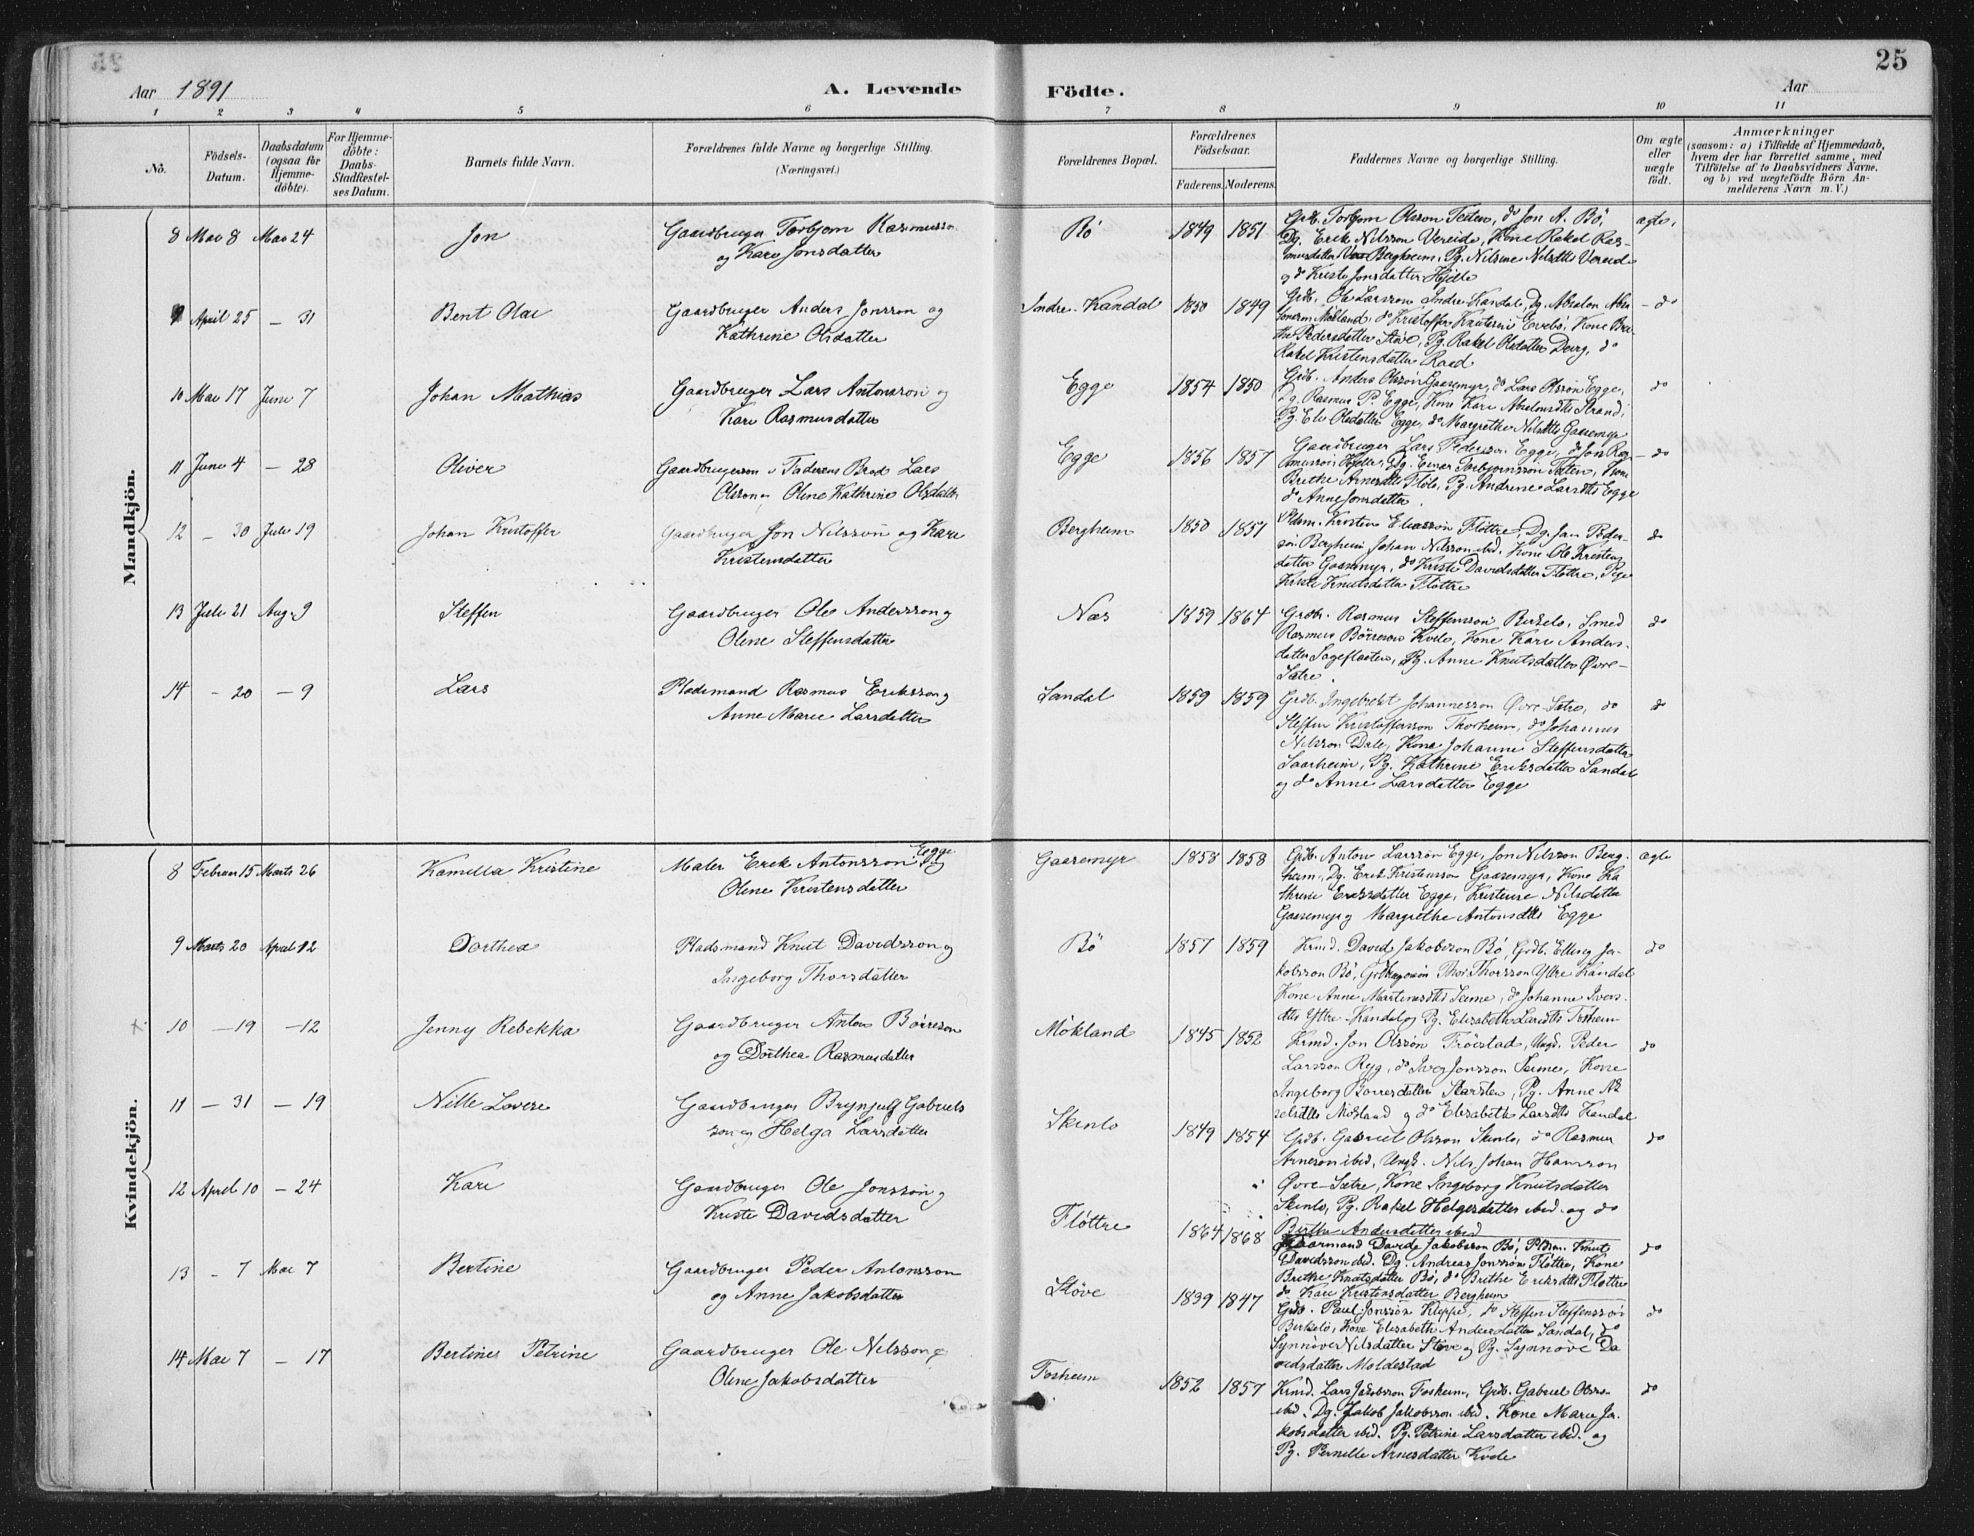 25
Aar 1891 A. Levende Födte. Aar
1 2 3 4 5 6 7 8 9 10 11
No. Födsels-Datum. Daabsdatum (ogsaa för Hjemmedöbte). For Hjemmedöbte: Daabs-Stadfæstelses Datum. Barnets fulde Navn. Forældrenes fulde Navne og borgerlige Stilling. (Næringsvei.) Forældrenes Bopæl. Forældrenes Födselsaar. Faderens. Moderens. Faddernes Navne og borgerlige Stilling. Om ægte eller uægte födt. Anmærkninger (saasom: a) i Tilfælde af Hjemmedaab, hvem der har forrettet samme, med Tilföielse af to Daabsvidners Navne, og b) ved uægtefödte Börn Anmelderens Navn m. V.)
Mandkjön.
8 Mai 8 Mai 24 Jon Gaardbruger Torbjørn Rasmusson
og Kari Jonsdatter
Bö 1849 1851 Grdb. Torbjørn Olsson Texten, do Jon A. Bö, ægte,
Dg. Erik Nilsson Vereide, Kone Rakel Ras-
musdatter Bergheim, Pg. Nilsine Nilsdtte Vereide
og do Kristi Jonsdatter Hjelle
9 April 25 – 31 Bent Olai Gaardbruger Anders Jonsson og
Kathrine Olsdatter
Indre-Kandal 1850 1849 Grdb. Ole Larsson Indre-Kandal, Dg. Absalon Abs- – do
Mökland, do Kristoffer Knutson Evebö, Kone Bri-
the Pedersdatter Støve, Pg. Rakel Olsdatter, do
Rakel Kristensdatter Raad
10 Mai 17 Juni 7 Johan Mathias Gaardbruger Lars Antonsson og
Kari Rasmusdatter
Egge 1854 1850 Grdb. Anders Olsson Gaasemyr, do Lars Olsson Egge, do
Dg. Rasmus P. Egge, Kone Kari Absalonsdtte Strand,
Pg. Eli Olsdatter Egge, do Margrethe Nilsdtte Gaasemyr
11 Juni 4 – 28 Oliver Gaardbrugerson i Faderens Brød Lars
Olsson og Oline Kathrine Olsdatter
Egge 1856 1857 Gaardbruger Lars Pederson Egge, do Jon Ras- – do
musson Hjelle, Dg. Einar Torbjørnsson Texten, Kone
Brithe Arnesdtte Fløte, Pg. Andrine Larsdtte Egge
do Anne Jonsdatter
12 – 30 Juli 19 Johan Kristoffer Gaardbruger Jon Nilsson og Kari
Kristensdatter
Bergheim 1850 1857 Pldsm. Kristen Eliasson Fløttre, Dg. Jan Peder- do
son Bergheim Johan Nilsson ibid, Kone Ole Kristens
datter Gaasemyr, do Kristi Davidsdatter Fløttre, Pige
Kristi Knutsdatter Fløttre
13 Juli 21 Aug 9 Steffen Gaardbruger Ole Andersson og
Oline Steffensdatter
Næs 1859 1864 Grdb. Rasmus Steffensson Birkelo, Smed do
Rasmus Børreson Kvile, Kone Kari Anders-
datter Sageflaaten, Pg. Anne Knutsdatter Øvre-
Sætre.
14 – 20 – 9 Lars Pladsmand Rasmus Eriksson og
Anne Marie Larsdatter
Sandal 1859 1859 Grdb. Ingebrikt Johannesson Øvre-Sætre, do do
Steffen Kristoffersson Thorheim, do Johannes
Nilsson Dale, Kone Johanne Steffensdatter
Saarheim, Pg. Kathrine Eriksdatter Sandal
og do Anne Larsdatter Egge
Kvindekjön.
8 Februar 15 Marts 26 Kamilla Kristine Maler Erik Antonsson Egge og
Oline Kristensdatter
Gaasemyr 1858 1858 Grdb. Anton Larsson Egge, Jon Nilsson Berg- ægte
heim, Dg. Erik Kristensson Gaasemyr, Kone Ka-
thrine Eriksdatter Egge, Kristense Nilsdatter
Gaasemyr og Margrethe Antonsdtte Egge
9 Marts 20 April 12 Dorthea Pladsmand Knut Davidsson og
Ingeborg Thorsdatter
Bö 1857 1859 Krmd. David Jakobsson Bö, Grdb. Elling Ja- do
kobsson Bö, Grdbrugersøn Thor Thorsson Yttre Kandal
Kone Anne Martinusdtte Seime, do Johanne Ivers-
dtte Yttre-Kandal og Pg. Elisabeth Larsdtte
10 – 19 – 12 Jenny Rebekka Gaardbruger Anton Børreson
og Dorthea Rasmusdatter
Mökland 1845 1852 Krmd. Jon Olsson Trøistad, Ungk. Peder do
Larsson Ryg, do Iver Jonsson Seime, Kone
Ingeborg Børresdatter Karsten, Pg. Anne
Mökland og do Elisabeth Larsdtte Kandal
11 – 31 – 19 Nille Lovise Gaardbruger Brynjulf Gabriels
son og Helga Larsdatter
Skinlo 1849 1854 Grdb. Gabriel Olsson Skinlo, do Rasmus do
Arneson ibid, Ungk. Nils Johan Hansson
Øvre-Sætre, Kone Ingeborg Knutsdatter
Skinlo, Pg. Rakel Helgesdatter ibid. og do
Brithe Andersdatter ibid
12 April 10 – 24 Kari Gaardbruger Ole Jonsson og
Kristi Davidsdatter
Fløttre 1864 1868 Kaarmand Davids Jakobsson Bö, Pldsm. Knut do
Davidsson ibid. Dg. Andreas Jonsson Fløttre, Kone
Brithe Knutsdatter Bö, do Brithe Eriksdtte Fløttre
do Kari Kristensdatter Bergheim
13 – 7 Mai 7 Bertine Gaardbruger Peder Antonsson
og Anne Jakobsdatter
Støve 1839 1847 Grdb. Paul Jonsson Kleppe, do Steffen Steffensson do
Birkelo, Kone Elisabeth Andersdatter Sandal, do
Synnøve Nilsdatter Støve og Pg. Synnøve Da
vidsdatter Moldestad
14 Mai 7 – 17 Bertines Petrine Gaardbruger Ole Nilsson og
Oline Jakobsdatter
Fosheim 1852 1857 Krmd. Lars Jakobsson Fosheim, Grdb. Gabriel Olsson do
ibid. Dg. Jakob Jakobsson ibid. Kone Marie Ja-
kobsdatter ibid. Pg. Petrine Larsdatter ibid. og
Pg. Pernille Arnesdatter Kvile